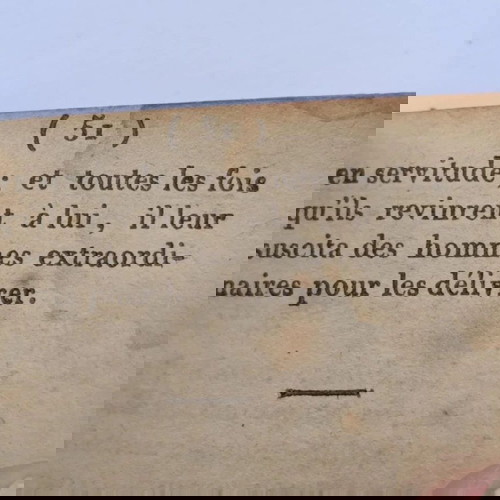 ( 51 )
en servitude; et toutes les fois
qu'ils revinrent à lui, il leur
suscita des hommes extraordi-
naires pour les délivrer.